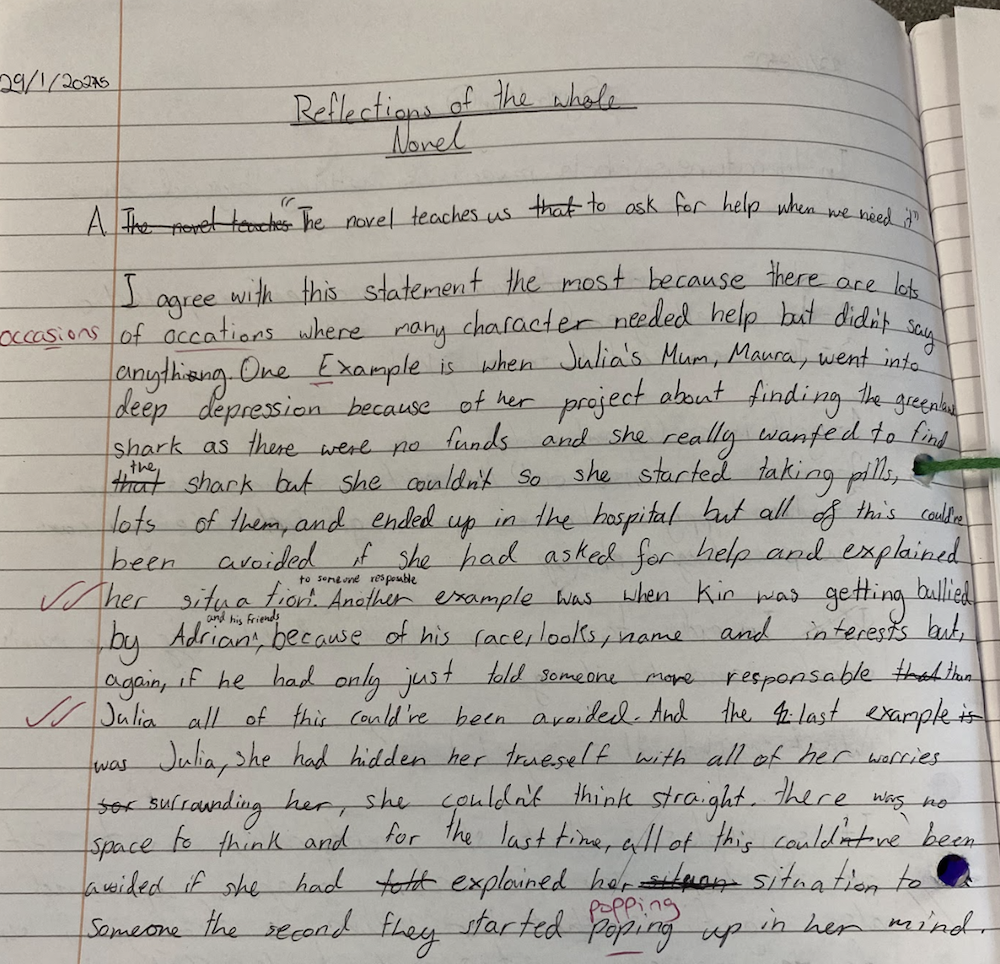 29/1/2025
Reflections of the whole
Novel
A. The novel teaches "The novel teaches us that to ask for help when we need it"
I agree with this statement the most because there are lots
occasions of occations where many character needed help but didn't say
anything. One Example is when Julia's Mum, Maura, went into
deep depression because of her project about finding the greenland
shark as there were no funds and she really wanted to find
the
that shark but she couldn't so she started taking pills,
lots of them, and ended up in the hospital but all of this could've
been avoided if she had asked for help and explained
to someone resposble
her situation. Another example was when Kin was getting bullied
and his friends
by Adrian, because of his race, looks, name and interests but,
again, if he had only just told someone more responsable that than
Julia all of this could've been avoided. And the last example is
was Julia, she had hidden her trueself with all of her worries
surrounding her, she couldn't think straight. there was no
space to think and for the last time, all of this could've been
avoided if she had told explained her situation to
someone the second they started poping up in her mind.
popping